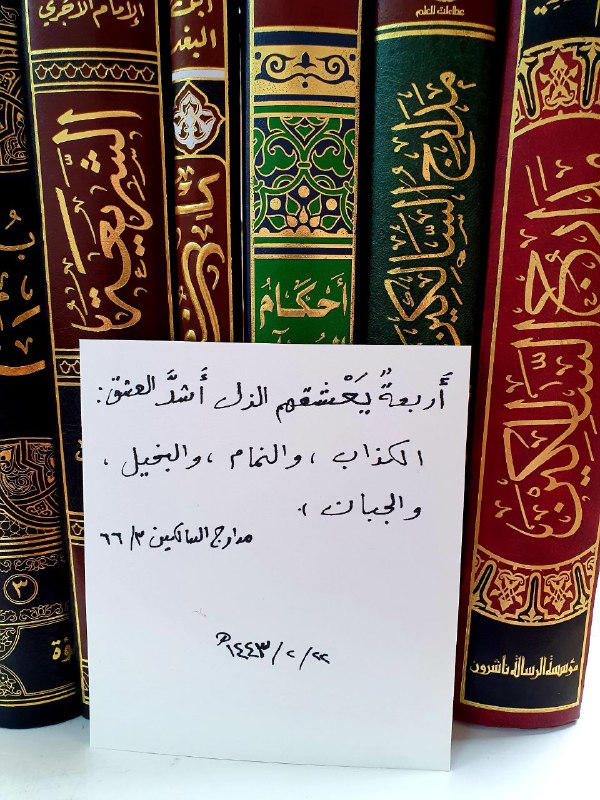 الإمام الآجري
الشريعة
عطاءات العلم
مدارج السالكين
مدارج السالكين
أحكام
أَربعةٌ يَعْشقهم الذل أَشدَّ العشق:
الكذاب، والنمام، والبخيل،
والجبان.
مدارج السالكين ٣/ ٦٦
٢٢/ ٢/ ١٤٤٣هـ
٣
مؤسسة الرسالة ناشرون